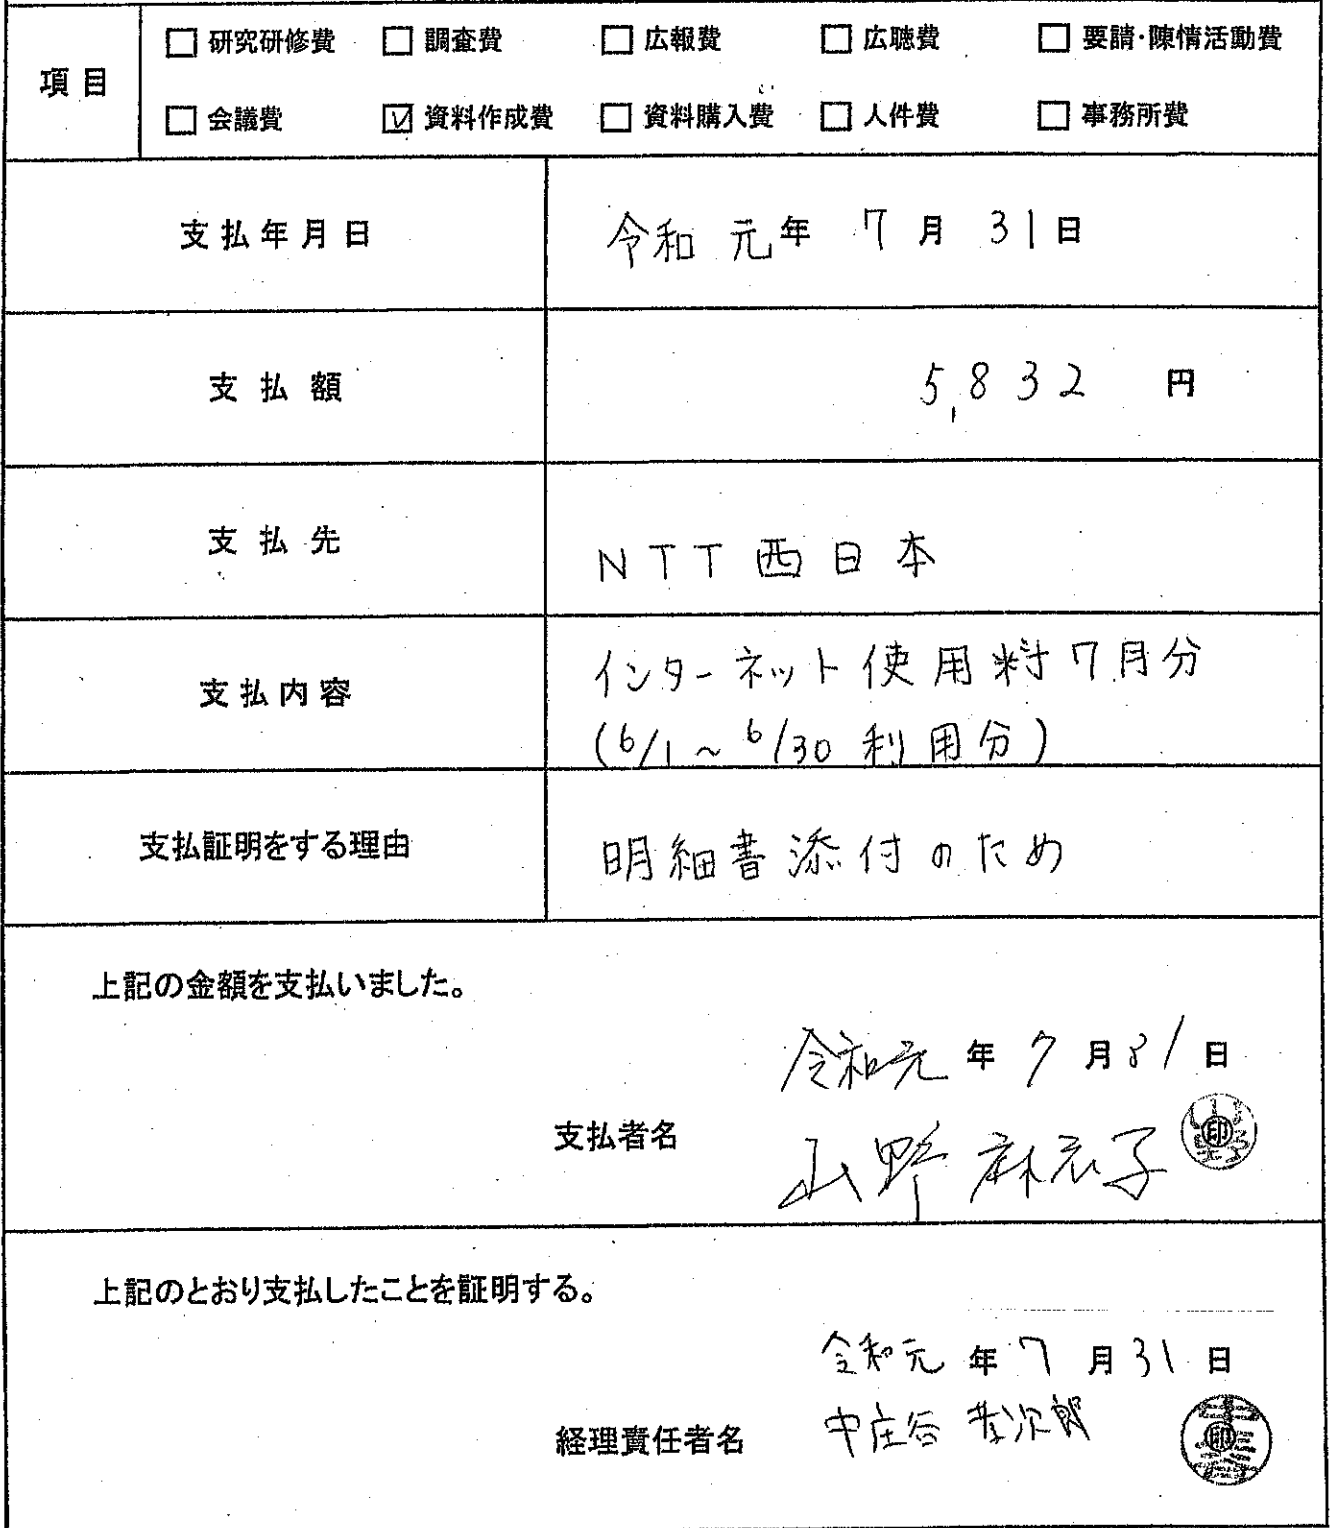 項目
□ 研究研修費 □ 調査費 □ 広報費 □ 広聴費 □ 要請・陳情活動費
□ 会議費 ☑ 資料作成費 □ 資料購入費 □ 人件費 □ 事務所費
支払年月日 令和 元年 7月 31日
支払額 5,832 円
支払先 NTT西日本
支払内容 インターネット使用料7月分
(6/1~6/30 利用分)
支払証明をする理由 明細書添付のため
上記の金額を支払いました。
令和元年 7月31日
支払者名 山野 麻衣子 印
上記のとおり支払したことを証明する。
令和元年 7月31日
経理責任者名 中庄谷 孝次郎 印